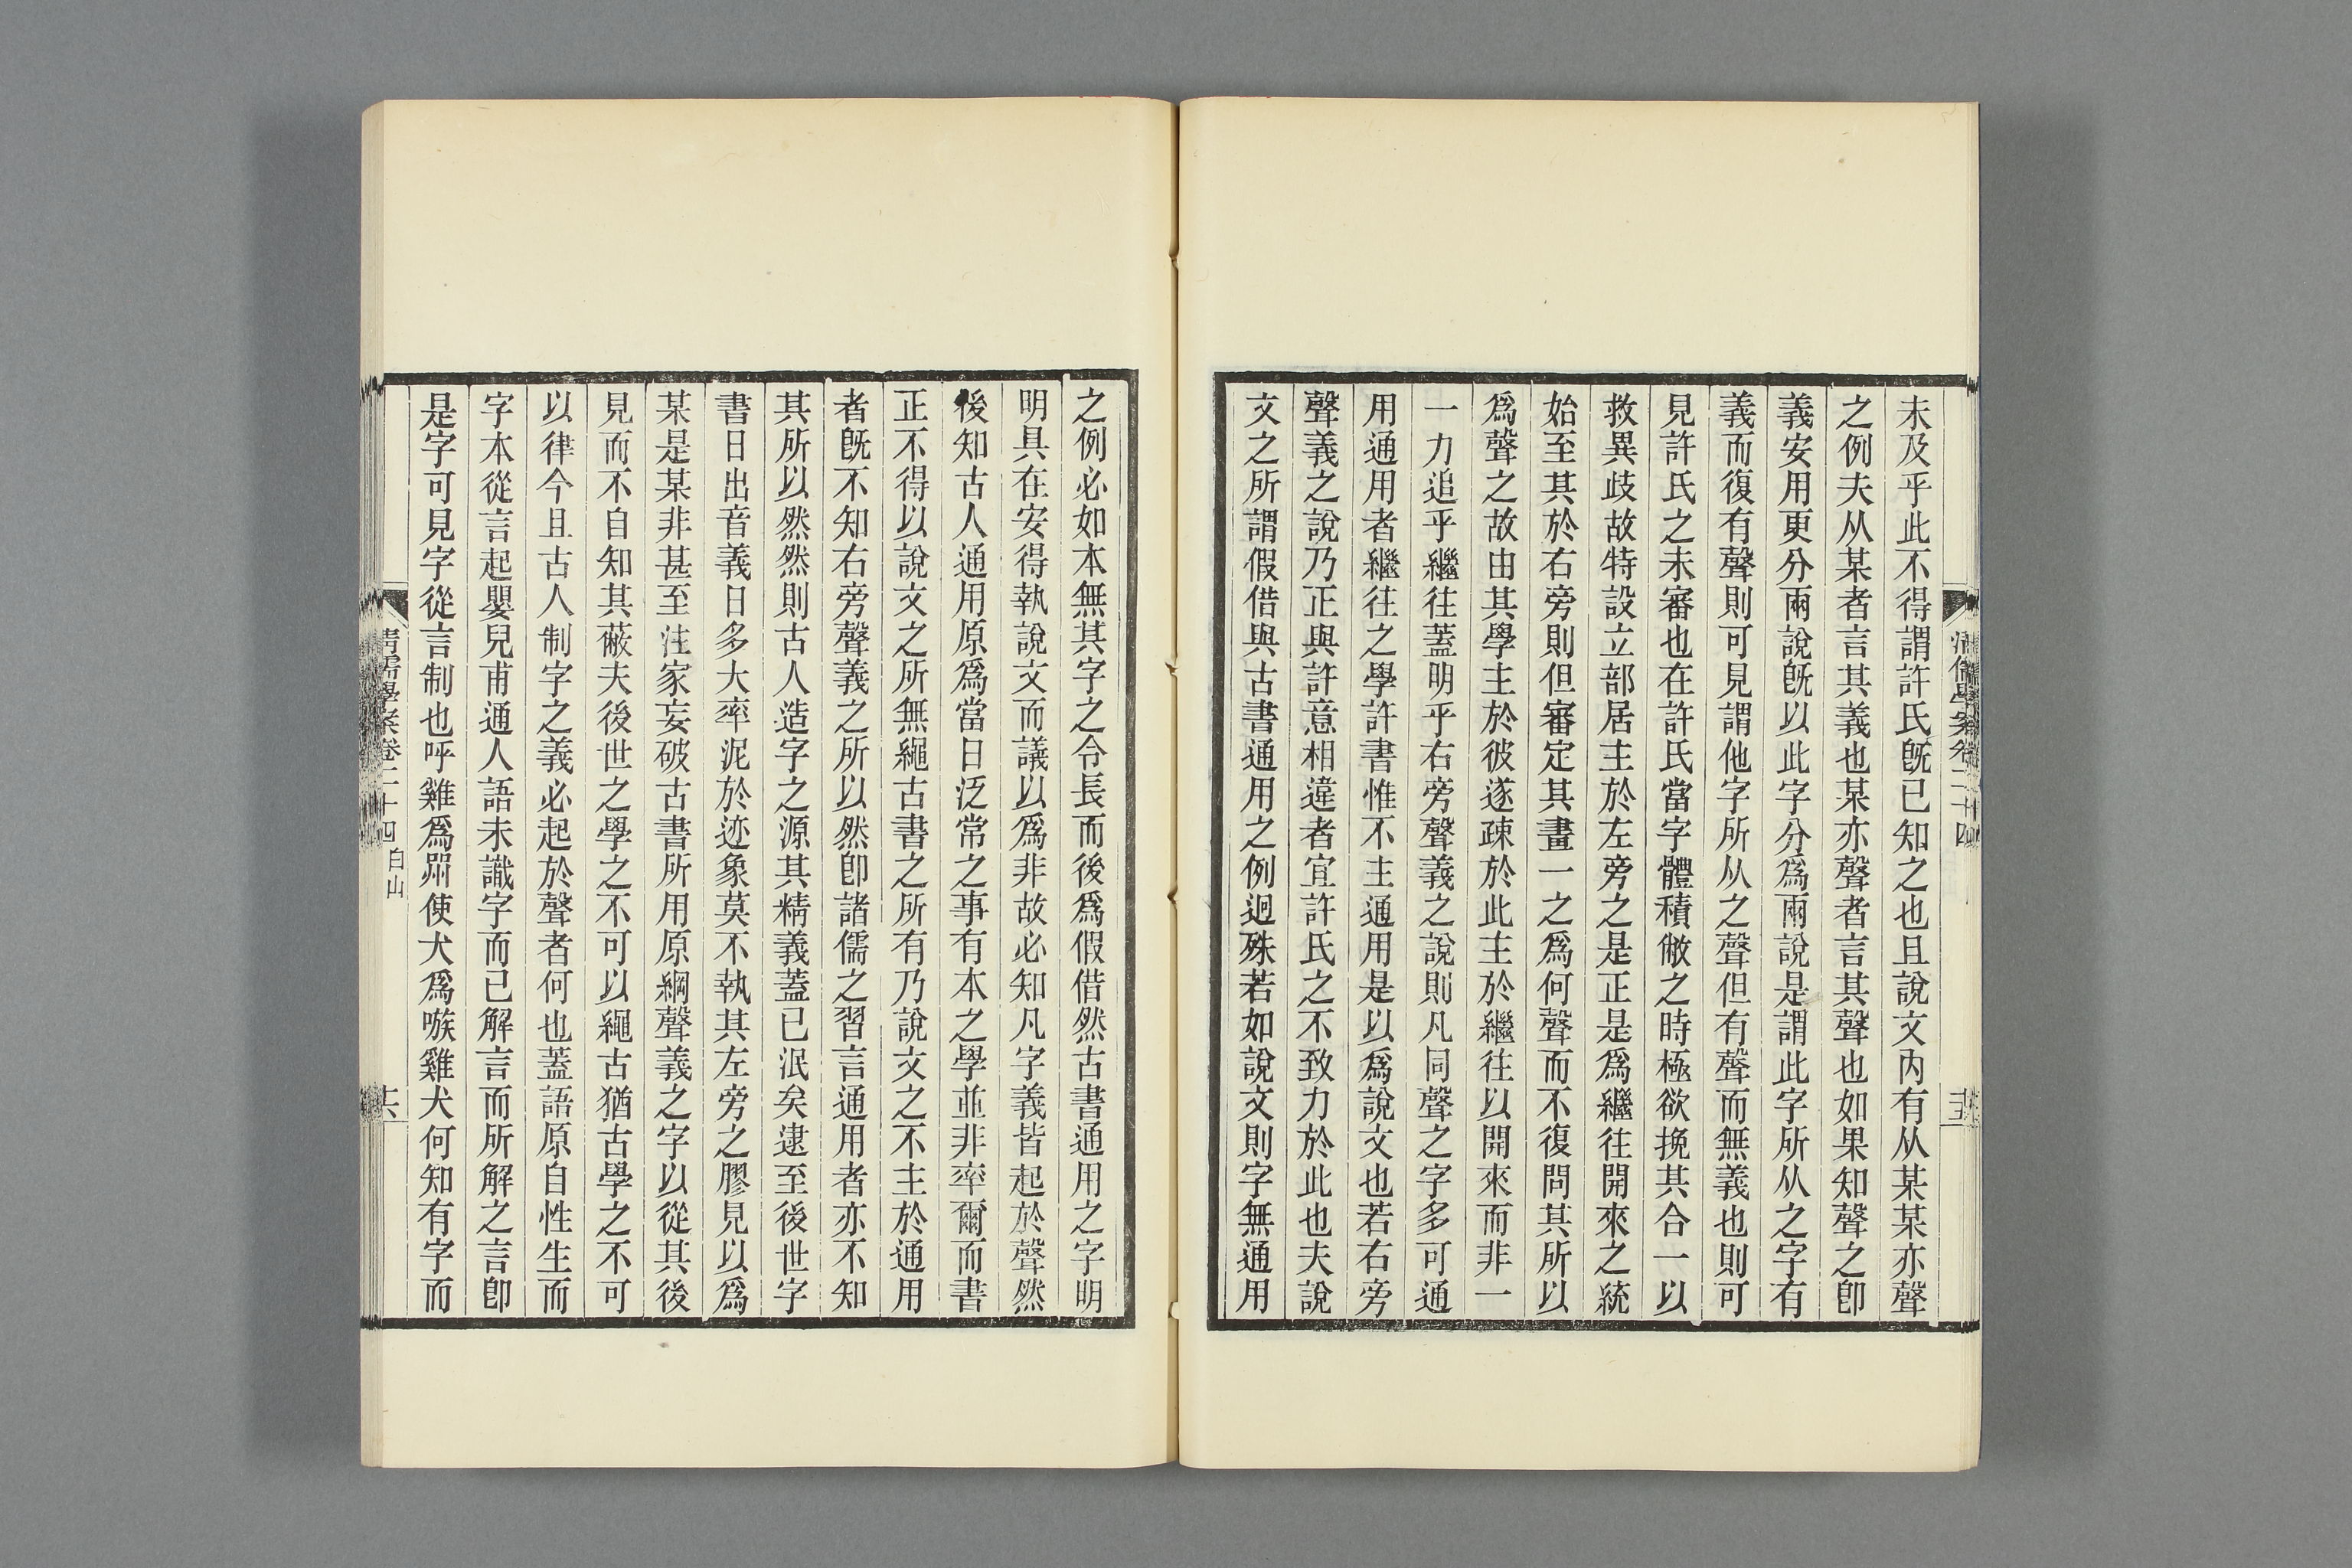 未及乎此不得謂許氏旣已知之也且說文內有从某某亦聲
之例夫从某者言其義也某亦聲者言其聲也如果知聲之卽
義安用更分兩說旣以此字分爲兩說是謂此字所从之字有
義而復有聲則可見謂他字所从之聲但有聲而無義也則可
見許氏之未審也在許氏當字體積敝之時極欲挽其合一以
救異歧故特設立部居主於左旁之是正是爲繼往開來之統
始至其於右旁則但審定其畫一之爲何聲而不復問其所以
爲聲之故由其學主於彼遂疎於此主於繼往以開來而非一
一力追乎繼往蓋明乎右旁聲義之說則凡同聲之字多可通
用通用者繼往之學許書惟不主通用是以爲說文也若右旁
聲義之說乃正與許意相違者宜許氏之不致力於此也夫說
文之所謂假借與古書通用之例迥殊若如說文則字無通用
之例必如本無其字之令長而後爲假借然古書通用之字明
明具在安得執說文而議以爲非故必知凡字義皆起於聲然
後知古人通用原爲當日泛常之事有本之學並非率爾而書
正不得以說文之所無繩古書之所有乃說文之不主於通用
者旣不知右旁聲義之所以然卽諸儒之習言通用者亦不知
其所以然然則古人造字之源其精義蓋已泯矣逮至後世字
書日出音義日多大率泥於迹象莫不執其左旁之膠見以爲
某是某非甚至注家妄破古書所用原綱聲義之字以從其後
見而不自知其蔽夫後世之學之不可以繩古猶古學之不可
以律今且古人制字之義必起於聲者何也蓋語原自性生而
字本從言起嬰兒甫通人語未識字而已解言而所解之言卽
是字可見字從言制也呼雞爲喌使犬爲嗾雞犬何知有字而
清儒學案卷二十四 白山
十六